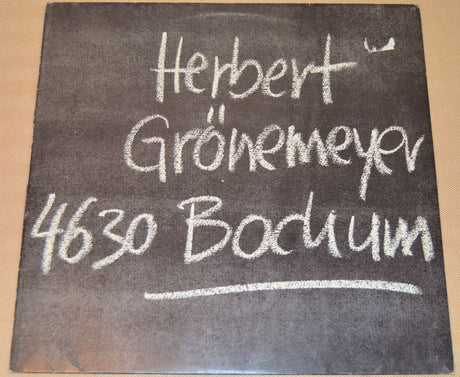 Herbert
Grönemeyer
4630 Bochum